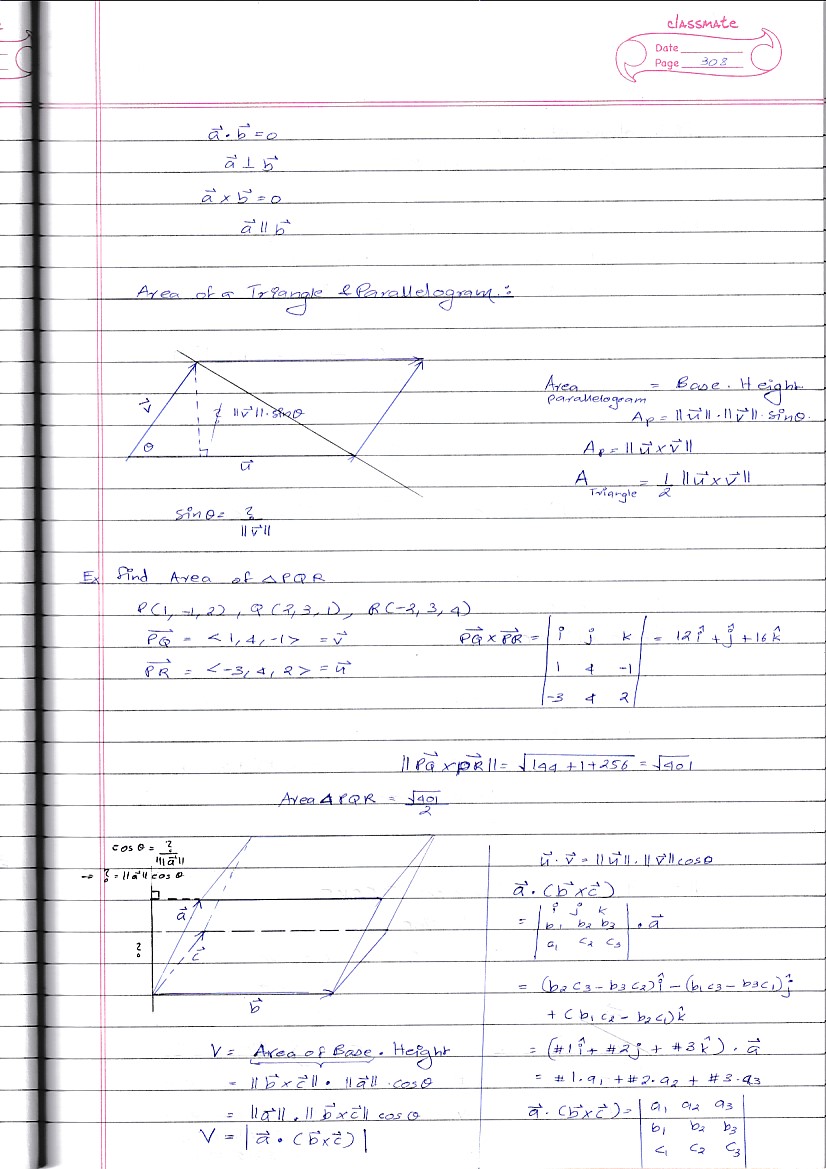 classmate
Date
Page 308
a⃗ · b⃗ = 0
a⃗ ⊥ b⃗
a⃗ × b⃗ = 0
a⃗ || b⃗
Area of a Triangle & Parallelogram :
v⃗
θ
? ||v⃗||·sinθ
u⃗
sinθ = ?/||v⃗||
Area Parallelogram = Base · Height
A_P = ||u⃗||·||v⃗||·sinθ.
A_P = ||u⃗ × v⃗||
A Triangle = 1/2 ||u⃗ × v⃗||
Ex find Area of △PQR
P(1, -1, 2), Q(2, 3, 1), R(-2, 3, 4)
PQ⃗ = <1, 4, -1> = v⃗
PR⃗ = <-3, 4, 2> = u⃗
PQ⃗ × PR⃗ = | i j k | = 12î + ĵ + 16k̂
| 1 4 -1 |
| -3 4 2 |
||PQ⃗ × PR⃗|| = √(144 + 1 + 256) = √401
Area △PQR = √401/2
cosθ = ?/||a⃗||
→ ? = ||a⃗|| cosθ
a⃗
?
c⃗
b⃗
V = Area of Base · Height
= ||b⃗ × c⃗|| · ||a⃗|| · cosθ
= ||a⃗|| · ||b⃗ × c⃗|| cosθ
V = |a⃗ · (b⃗ × c⃗)|
u⃗ · v⃗ = ||u⃗|| · ||v⃗|| cosθ
a⃗ · (b⃗ × c⃗)
= | i j k |
| b₁ b₂ b₃ | · a⃗
| a₁ c₂ c₃ |
= (b₂c₃ - b₃c₂)î - (b₁c₃ - b₃c₁)ĵ
+ (b₁c₂ - b₂c₁)k̂
= (#1î + #2j + #3k̂) · a⃗
= #1·a₁ + #2·a₂ + #3·a₃
a⃗ · (b⃗ × c⃗) = | a₁ a₂ a₃ |
| b₁ b₂ b₃ |
| c₁ c₂ c₃ |